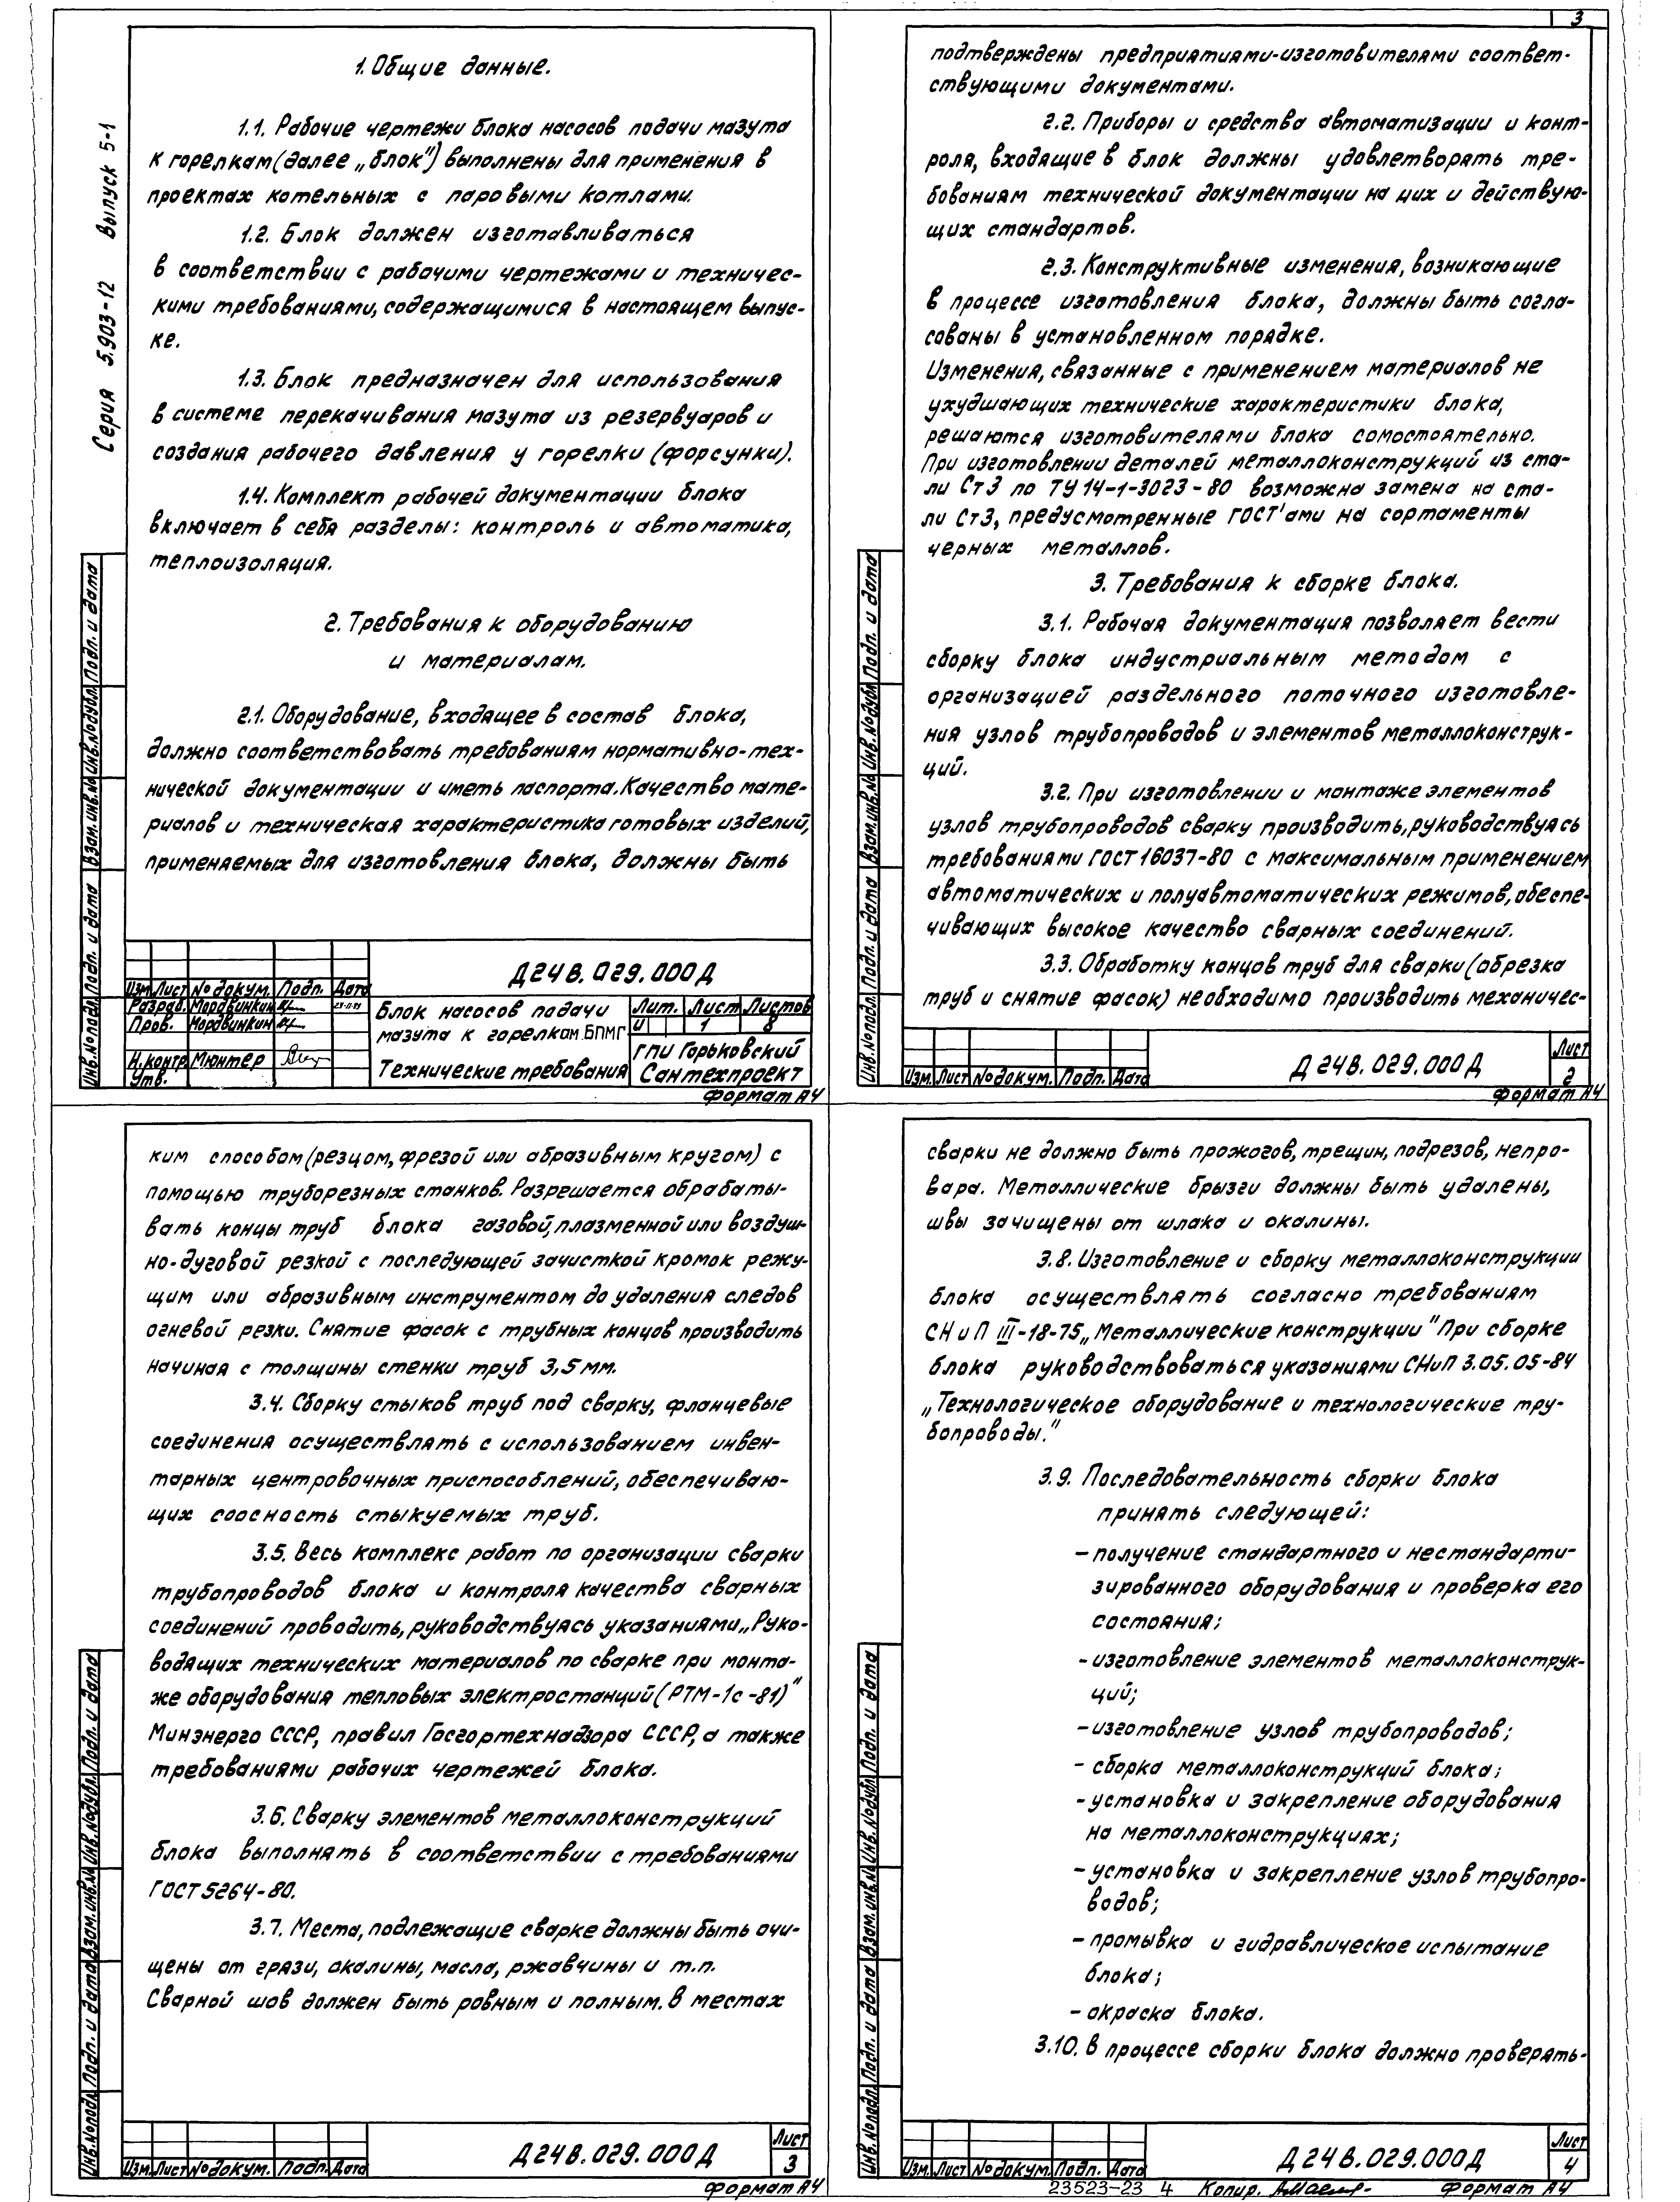 3
Серия 5.903-12 Выпуск 5-1
1. Общие данные.
1.1. Рабочие чертежи блока насосов подачи мазута
к горелкам (далее „блок") выполнены для применения в
проектах котельных с паровыми котлами.
1.2. Блок должен изготавливаться
в соответствии с рабочими чертежами и техничес-
кими требованиями, содержащимися в настоящем выпус-
ке.
1.3. Блок предназначен для использования
в системе перекачивания мазута из резервуаров и
создания рабочего давления у горелки (форсунки).
1.4. Комплект рабочей документации блока
включает в себя разделы: контроль и автоматика,
теплоизоляция.
2. Требования к оборудованию
и материалам.
2.1. Оборудование, входящее в состав блока,
должно соответствовать требованиям нормативно-тех-
нической документации и иметь паспорта. Качество мате-
риалов и техническая характеристика готовых изделий,
применяемых для изготовления блока, должны быть
Инв.№подл. Подп. и дата Взам.инв.№ Инв.№дубл. Подп. и дата
Д24В.029.000Д
Изм. Лист № докум. Подп. Дата
Разраб. Мордвинкин
Пров. Мордвинкин
Н.контр. Мюнтер
Утв.
Блок насосов подачи
мазута к горелкам БПМГ
Технические требования
Лит. Лист Листов
И 1 8
ГПИ Горьковский
Сантехпроект
Формат А4
подтверждены предприятиями-изготовителями соответ-
ствующими документами.
2.2. Приборы и средства автоматизации и конт-
роля, входящие в блок должны удовлетворять тре-
бованиям технической документации на них и действую-
щих стандартов.
2.3. Конструктивные изменения, возникающие
в процессе изготовления блока, должны быть согла-
сованы в установленном порядке.
Изменения, связанные с применением материалов не
ухудшающих технические характеристики блока,
решаются изготовителями блока сомостоятельно.
При изготовлении деталей металлоконструкций из ста-
ли Ст3 по ТУ 14-1-3023-80 возможна замена на ста-
ли Ст3, предусмотренные ГОСТ'ами на сортаменты
черных металлов.
3. Требования к сборке блока.
3.1. Рабочая документация позволяет вести
сборку блока индустриальным методом с
организацией раздельного поточного изготовле-
ния узлов трубопроводов и элементов металлоконструк-
ций.
3.2. При изготовлении и монтаже элементов
узлов трубопроводов сварку производить, руководствуясь
требованиями ГОСТ 16037-80 с максимальным применением
автоматических и полуавтоматических режимов, обеспе-
чивающих высокое качество сварных соединений.
3.3. Обработку концов труб для сварки (обрезка
труб и снятие фасок) необходимо производить механичес-
Инв.№подл. Подп. и дата Взам.инв.№ Инв.№дубл. Подп. и дата
Изм. Лист № докум. Подп. Дата
Д24В.029.000Д
Лист
2
Формат А4
ким способом (резцом, фрезой или абразивным кругом) с
помощью труборезных станков. Разрешается обрабаты-
вать концы труб блока газовой, плазменной или воздуш-
но-дуговой резкой с последующей зачисткой кромок режу-
щим или абразивным инструментом до удаления следов
огневой резки. Снятие фасок с трубных концов производить
начиная с толщины стенки труб 3,5 мм.
3.4. Сборку стыков труб под сварку, фланцевые
соединения осуществлять с использованием инвен-
тарных центровочных приспособлений, обеспечиваю-
щих соосность стыкуемых труб.
3.5. Весь комплекс работ по организации сварки
трубопроводов блока и контроля качества сварных
соединений проводить, руководствуясь указаниями „Руко-
водящих технических материалов по сварке при монта-
же оборудования тепловых электростанций (РТМ-1с-81)"
Минэнерго СССР, правил Госгортехнадзора СССР, а также
требованиями рабочих чертежей блока.
3.6. Сварку элементов металлоконструкций
блока выполнять в соответствии с требованиями
ГОСТ 5264-80.
3.7. Места, подлежащие сварке должны быть очи-
щены от грязи, окалины, масла, ржавчины и т.п.
Сварной шов должен быть ровным и полным. В местах
Инв.№подл. Подп. и дата Взам.инв.№ Инв.№дубл. Подп. и дата
Изм. Лист № докум. Подп. Дата
Д24В.029.000Д
Лист
3
Формат А4
сварки не должно быть прожогов, трещин, подрезов, непро-
вара. Металлические брызги должны быть удалены,
швы зачищены от шлака и окалины.
3.8. Изготовление и сборку металлоконструкции
блока осуществлять согласно требованиям
СНиП III-18-75 „Металлические конструкции" При сборке
блока руководствоваться указаниями СНиП 3.05.05-84
„Технологическое оборудование и технологические тру-
бопроводы."
3.9. Последовательность сборки блока
принять следующей:
- получение стандартного и нестандарти-
зированного оборудования и проверка его
состояния;
- изготовление элементов металлоконструк-
ций;
- изготовление узлов трубопроводов;
- сборка металлоконструкций блока;
- установка и закрепление оборудования
на металлоконструкциях;
- установка и закрепление узлов трубопро-
водов;
- промывка и гидравлическое испытание
блока;
- окраска блока.
3.10. В процессе сборки блока должно проверять-
Инв.№подл. Подп. и дата Взам.инв.№ Инв.№дубл. Подп. и дата
Изм. Лист № докум. Подп. Дата
Д24В.029.000Д
Лист
4
23523-23 4 Копир. Формат А4